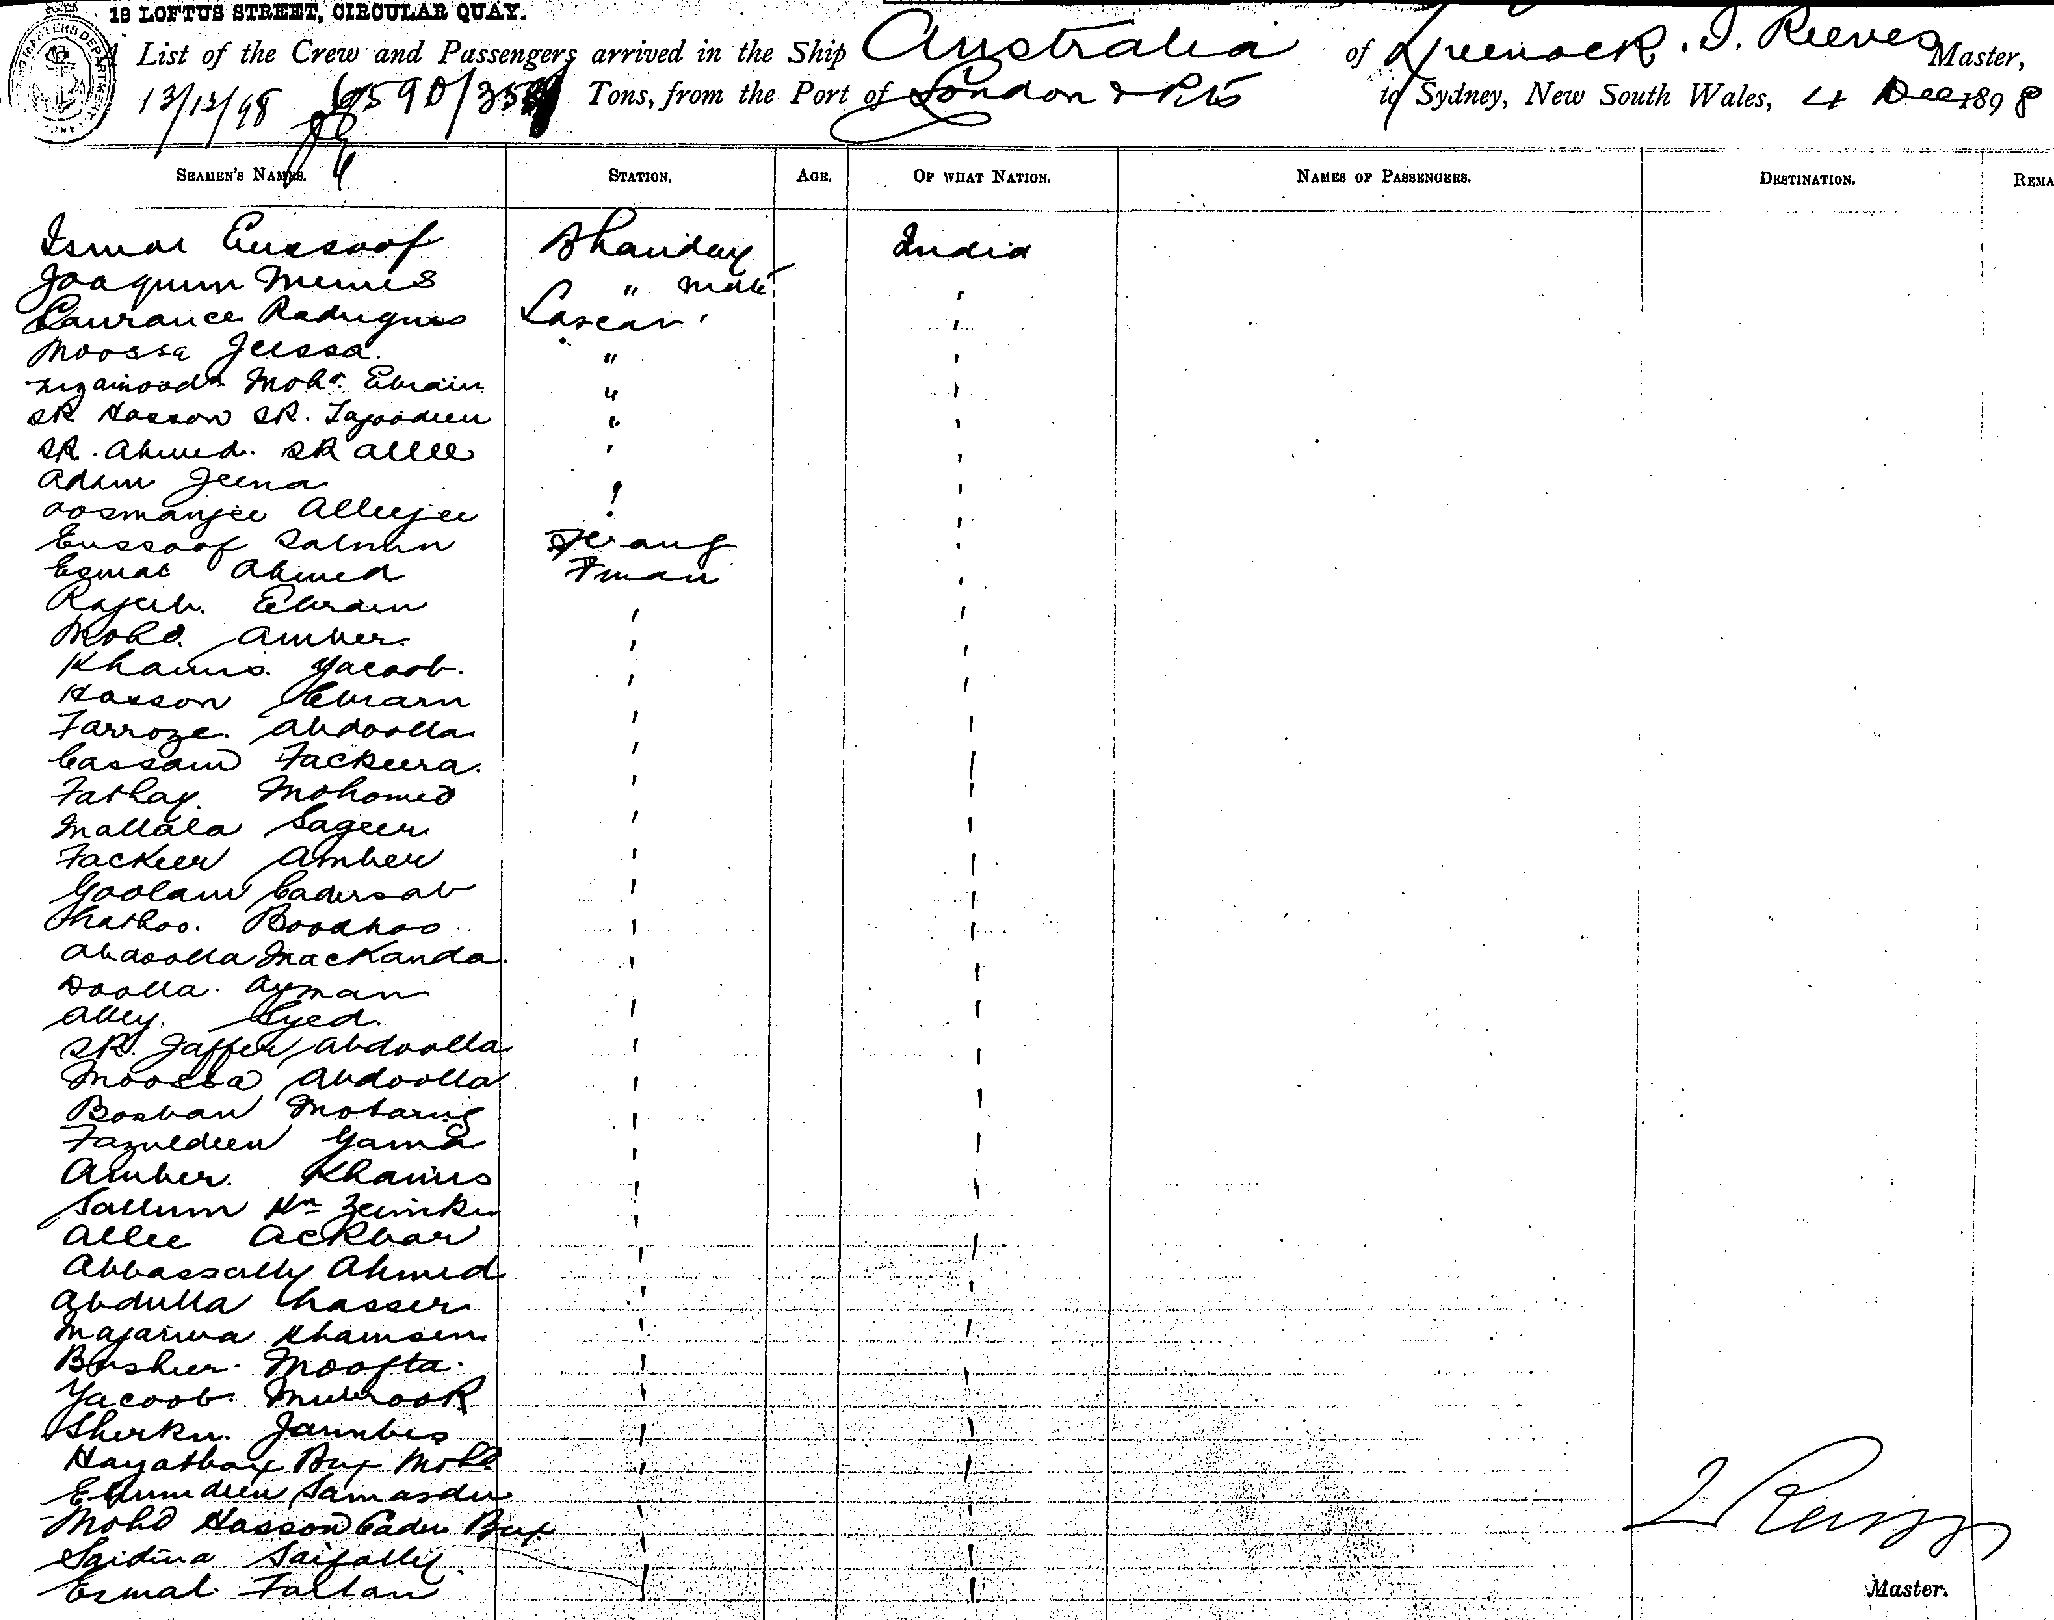 19 LOFTUS STREET, CIRCULAR QUAY.
A List of the Crew and Passengers arrived in the Ship Australia of Greenock. I. Reeves Master,
13/12/98 6590/35 Tons, from the Port of London & Pts to Sydney, New South Wales, 4 Dec 1898
SEAMEN'S NAMES. STATION. AGE. OF WHAT NATION. NAMES OF PASSENGERS. DESTINATION. REMA
Ismal Eussoof Bhanday India
Joaquim Menies " mate '
Laurance Radrigues Lascar '
Moossa Jeissa " '
Nizamoodn Mohd. Ebraim " '
SK Hasson SK. Tajoodeen " '
SK. Ahmed. SK allee ' '
Adam Jeena '
oosmanjee Alleejee ! '
Eussoof Salman Serang '
Esmal Ahmed Fman '
Rajeeb. Ebram ' '
Mohd. Amber. ' '
Khamis. Yacoob. ' '
Hasson Ebram ' '
Farroze. Abdoolla ' '
Cassam Fackeera. ' '
Fathay. Mohomed ' '
Mallala Sageer ' '
Fackeer Amber ' '
Goolam Cadersab ' '
Nathoo. Boodhoo ' '
Abdoolla Mackanda ' '
Doolla. Ayman ' '
Alley. Syed. ' '
SK. Jaffer Abdoolla ' '
Moossa Abdoolla ' '
Bosban Mobaruc ' '
Fazueldeen Gama ' '
Amber. Khamis ' '
Sallum Kn ' '
Allee Ackbar ' '
Abbassally Ahmed ' '
Abdulla Nasser ' '
Majariva Khamsen ' '
Busheer. Moofta. ' '
Yacoob. Mubrook ' '
Sherkn. Jaumbis ' '
Hayatbax Bux Mohd ' '
Samasdin ' '
Mohd Hasson Cader Bux ' '
Saidina Saifally ' '
Esmal Faltan ' '
I Reeves
Master.